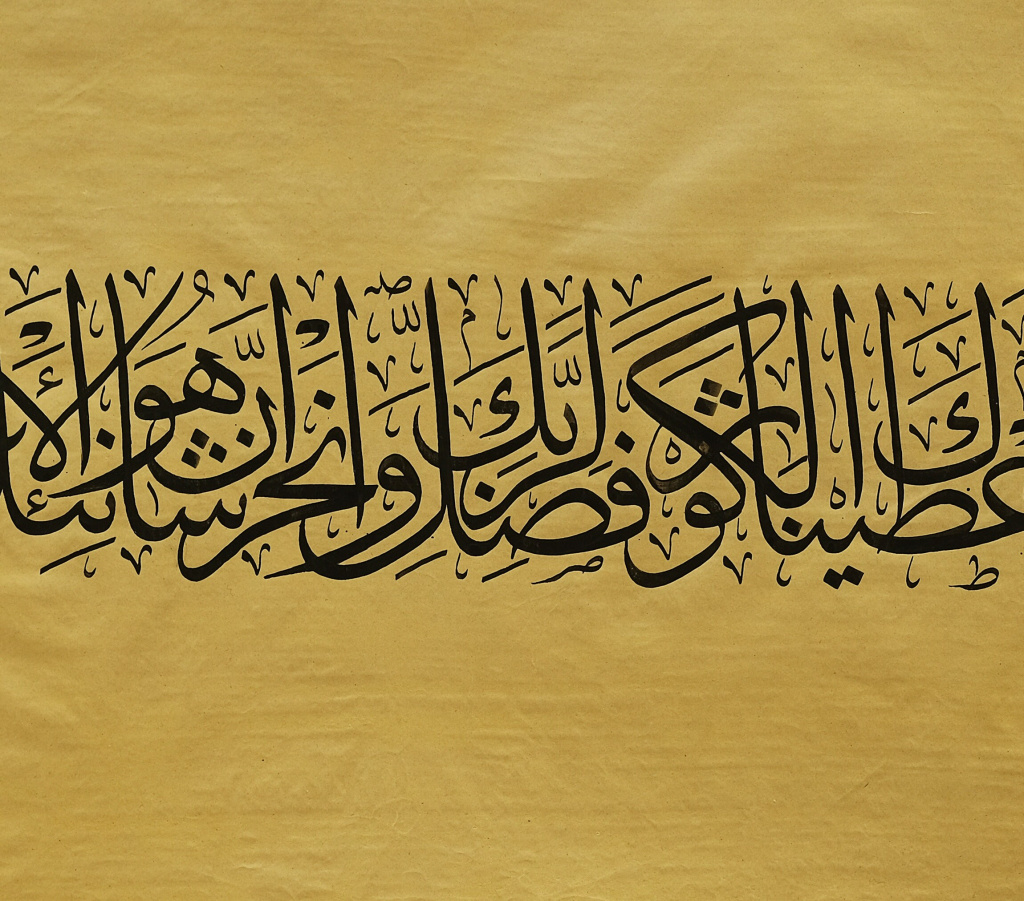 أعطيناك الكوثر فصل لربك وانحر إن شانئك هو الأ